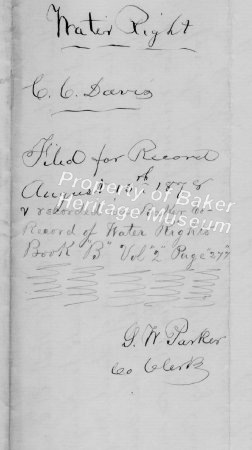 Water Right
C. C. Davis
Filed for Record
August 1878
& recorded in
Record of Water Rights
Book "B" Vol "2" Page 277
G. W. Parker
Co Clerk
Property of Baker
Heritage Museum